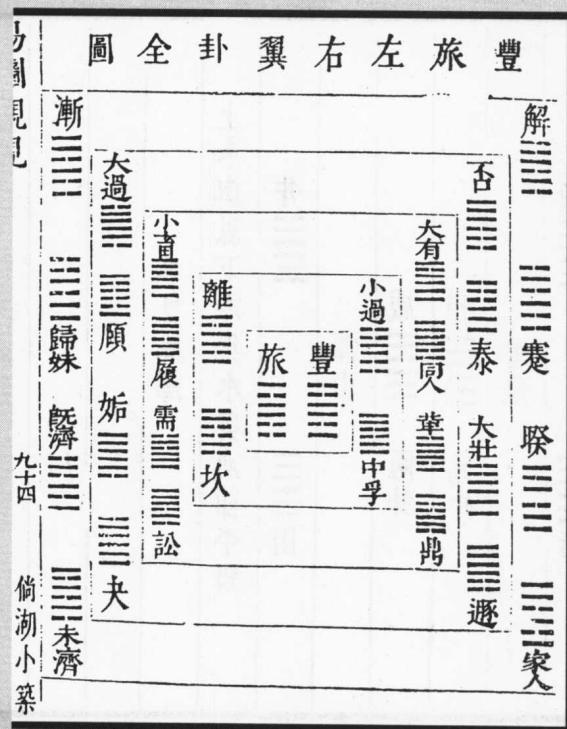 豐旅左右翼卦全圖
解
蹇
睽
家人
否
泰
大壯
遯
大有
同人
革
鼎
小過
中孚
豐
旅
離
坎
小畜
履
需
訟
大過
頤
姤
夬
漸
歸妹
既濟
未濟
易圖親見
九十四
倘湖小築